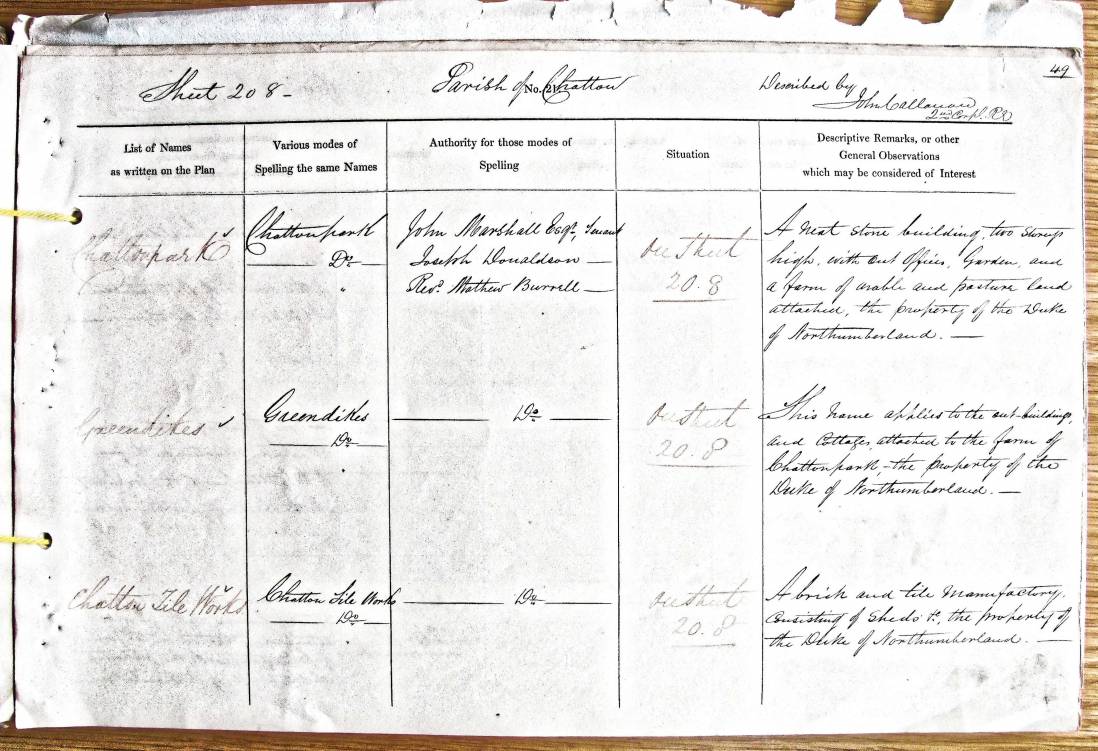 49
Sheet 20 8 - Parish of No. 21 Chatton Described by
John Callanan
2nd Corpl. RE
List of Names
as written on the Plan
Various modes of
Spelling the same Names
Authority for those modes of
Spelling
Situation
Descriptive Remarks, or other
General Observations
which may be considered of Interest
Chattonpark
Chattonpark
Do
"
John Marshall Esqr., Tenant
Joseph Donaldson —
Revd. Mathew Burrell —
on Sheet
20. 8
A neat stone building, two storeys
high, with out Offices, Garden, and
a farm of arable and pasture land
attached, the property of the Duke
of Northumberland. —
Greendikes
Greendikes
Do
"
Do
on Sheet
20. 8
This name applies to the out-buildings,
and Cottages attached to the farm of
Chattonpark, - the property of the
Duke of Northumberland. —
Chatton Tile Works
Chatton Tile Works
Do
"
Do
on Sheet
20. 8
A brick and tile manufactory,
consisting of Sheds &c, the property of
the Duke of Northumberland. —